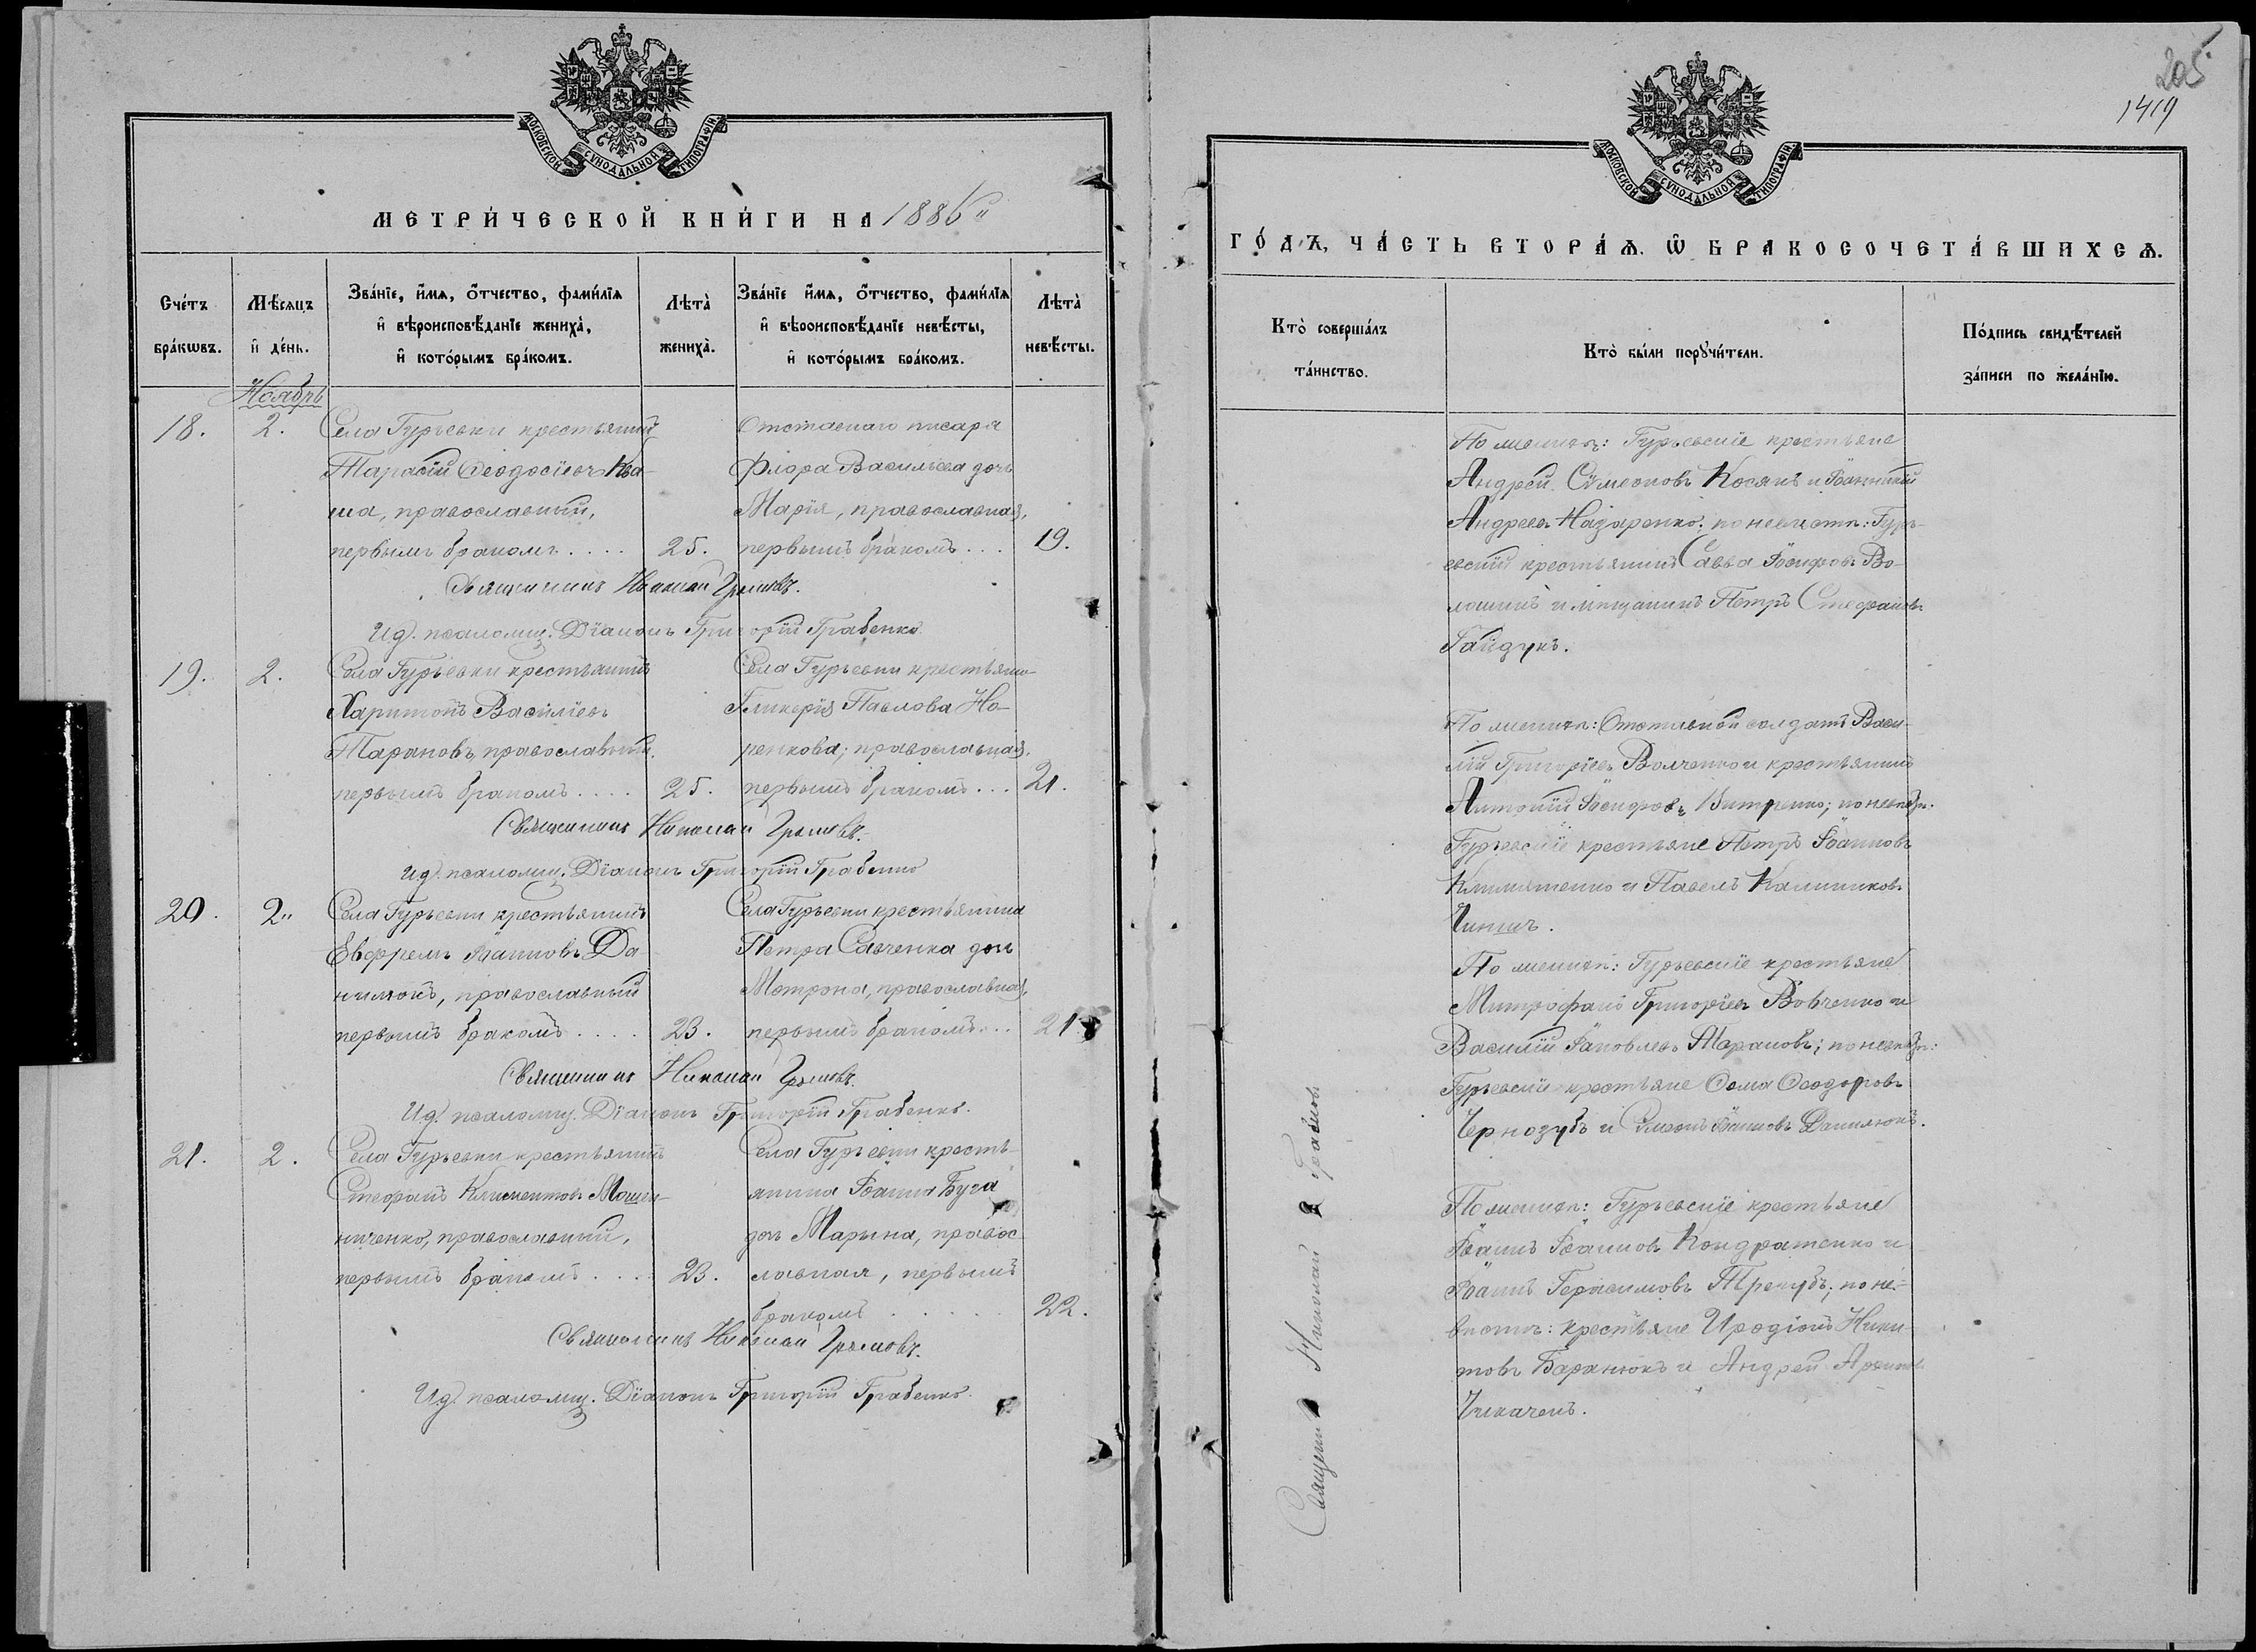 МОСКОВСКОЙ СѴНОДАЛЬНОЙ ТИПОГРАФІИ
МЕТРИ́ЧЕСКОЙ КНИ́ГИ НА 1886
Сче́тъ бра́кѡвъ.
Мѣ́сяцъ и҆ де́нь.
Зва́нїе, и҆́мѧ, ѻ҆́тчество, фами́лїѧ
и҆ вѣроисповѣ́данїе жениха̀,
и҆ кото́рымъ бра́комъ.
Лѣта̀ жениха̀.
Зва́нїе и҆́мѧ, ѻ҆́тчество, фами́лїѧ
и҆ вѣроисповѣ́данїе невѣ́сты,
и҆ кото́рымъ бра́комъ.
Лѣта̀ невѣ́сты.
Ноябрь
18.
2.
Села Гурьевки крестьянинъ
Тарасій Ѳеодосіевъ Ква-
ша, православный,
первымъ бракомъ....
25.
Отставнаго писаря
Флора Васильева дочь
Марія, православная,
первымъ бракомъ...
19.
Священникъ Николай
Ид. псаломщ. Діаконъ Григорій Грабенко
19.
2.
Села Гурьевки крестьянинъ
Харитонъ Василіевъ
Тарановъ, православный.
первымъ бракомъ....
25.
Села Гурьевки крестьян
Гликерія Павлова Но-
ренкова; православная.
первымъ бракомъ...
21.
Священникъ Николай
Ид. псаломщ. Діаконъ Григорій Грабенко
20.
2.
Села Гурьевки крестьянинъ
Евфремъ Іоанновъ Да
нилюкъ, православный
первымъ бракомъ....
23.
Села Гурьевки крестьянина
Петра Савченка дочь
Матрона, православная,
первымъ бракомъ...
21
Священникъ Николай
Ид. псаломщ. Діаконъ Григорій Грабенко.
21.
2.
Села Гурьевки крестьянинъ
Стефанъ Климентовъ
ниченко, православный,
первымъ бракомъ....
23.
Села Гурьевки кресть-
янина Іоанна Буга
дочь Марына, правос
лавная, первымъ
бракомъ.....
22.
Священникъ Николай
Ид. псаломщ. Діаконъ Григорій Грабенко.
205
1419
МОСКОВСКОЙ СѴНОДАЛЬНОЙ ТИПОГРАФІИ
ГО́ДЪ, ЧА́СТЬ ВТОРА́Ѧ. Ѡ҆ БРАКОСОЧЕТА́ВШИХСѦ.
Кто̀ соверша́лъ та́инство.
Кто̀ бы́ли порꙋчи́тели.
По́дпись свидѣ́телей
за́писи по жела́нїю.
Священникъ Николай
По женихѣ: Гурьевскіе крестьяне
Андрей Сѵмеоновъ Косякъ и Іоанникій
Андреевъ Назаренко; по невѣстѣ: Гурь-
евскій крестьянинъ Савва Іосифовъ Во-
лошинъ и мещанинъ Петръ Стефановъ
Гайдукъ.
По женихѣ: Отставной солдатъ Васи-
лій Григоріевъ Волченко и крестьянинъ
Антоній Іосифовъ Витренко; по невѣстѣ:
Гурьевскіе крестьяне Петръ Іоанновъ
Климатенко и Павелъ Калиниковъ
По женихѣ: Гурьевскіе крестьяне
Митрофанъ Григоріевъ Вовченко и
Василій Іаковлевъ Тарановъ; по невѣстѣ:
Гурьевскіе крестьяне Ѳома Ѳеодоровъ
Чернозубъ и Сѵмеонъ Іоанновъ Данилюкъ.
По женихѣ: Гурьевскіе крестьяне
Іоаннъ Іоанновъ Кондратенко и
Іоаннъ Герасимовъ Трегубъ; по не-
вѣстѣ: крестьяне Иродіонъ Ники-
товъ Баранюкъ и Андрей